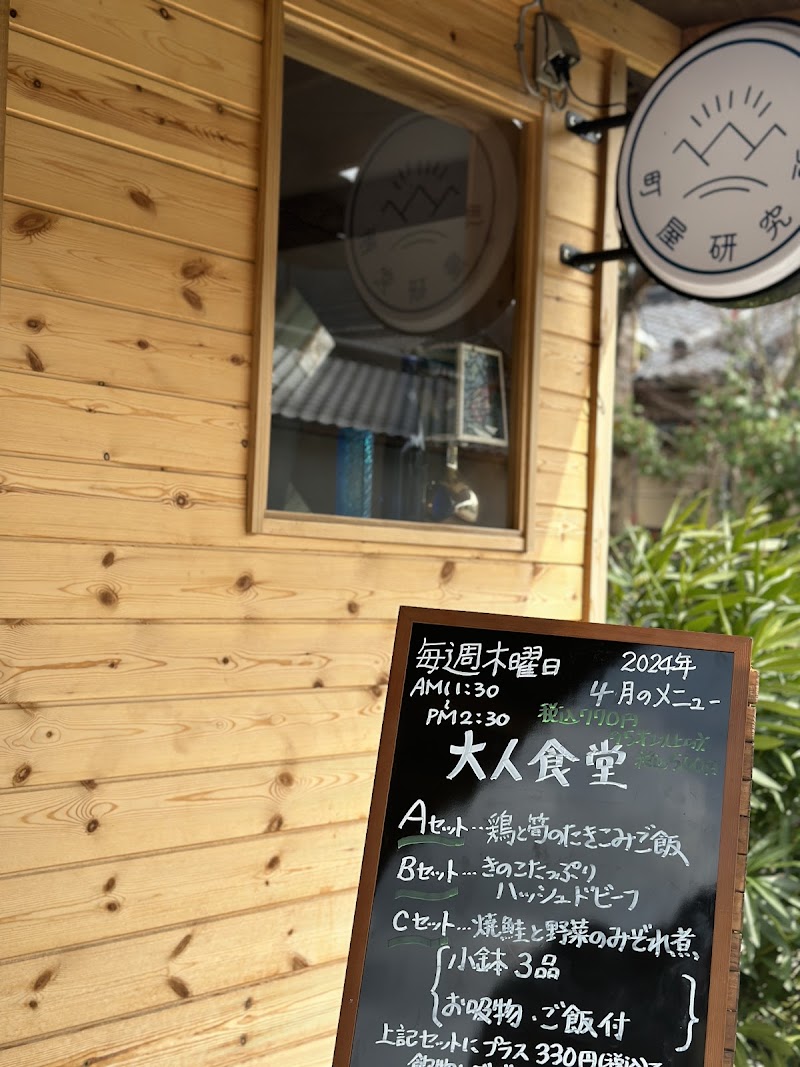 町屋研究
毎週木曜日
2024年
AM11:30
〜
PM2:30
4月のメニュー
税込770円
大人食堂
Aセット…鶏と筍のたきこみご飯
Bセット…きのこたっぷり
ハッシュドビーフ
Cセット…焼鮭と野菜のみぞれ煮
小鉢3品
お吸物・ご飯付
上記セットにプラス330円(税込)で